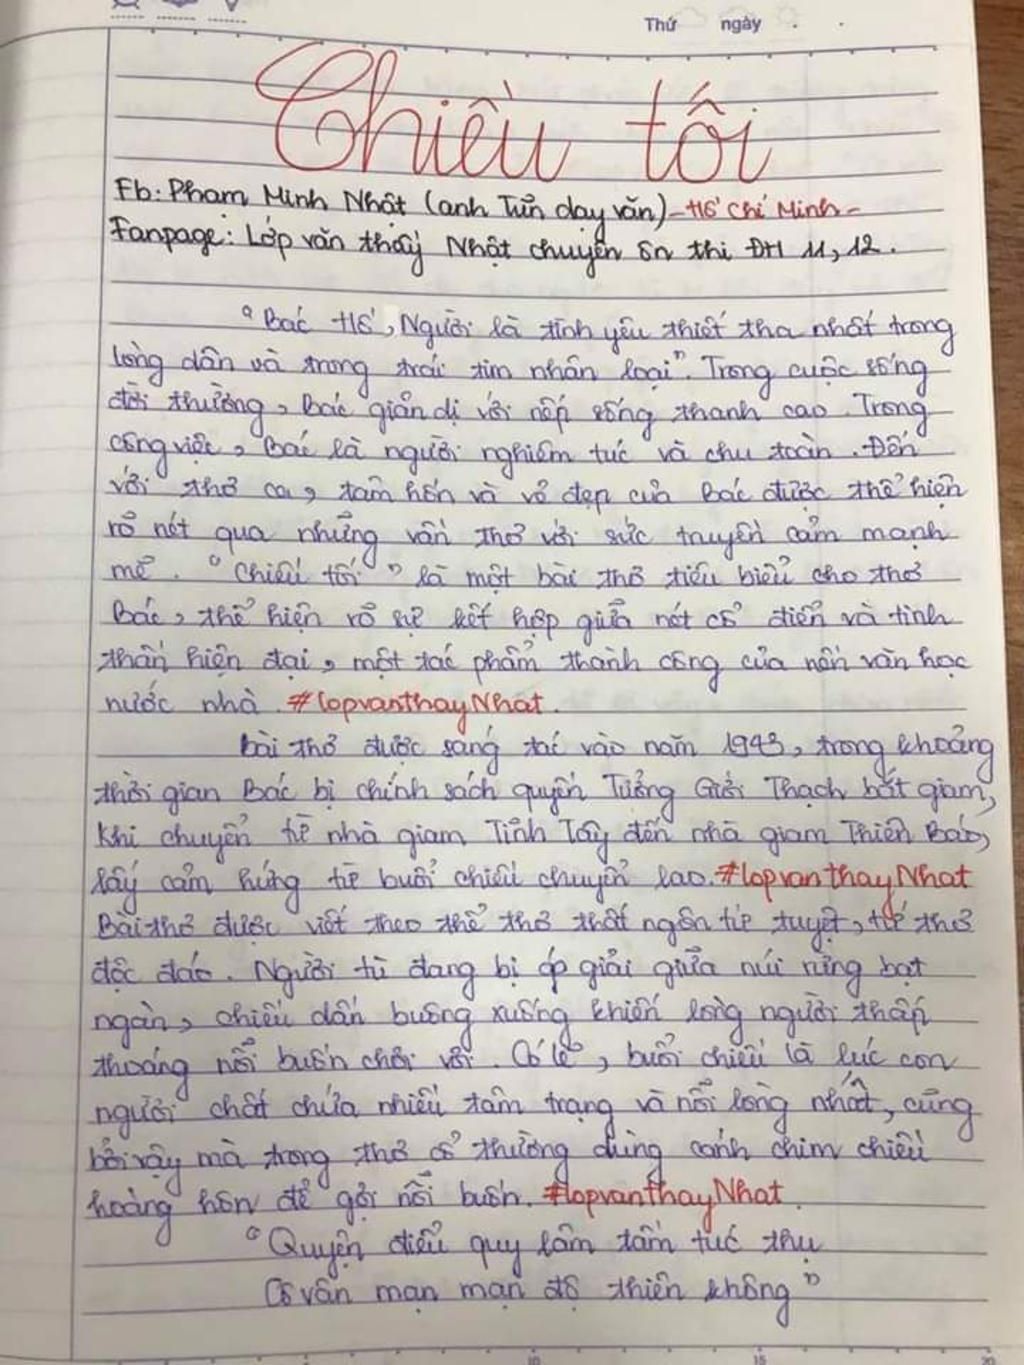 Thứ ngày
Chiều tối
Fb: Phạm Minh Nhật (anh Tủn dạy văn) - Hồ Chí Minh -
Fanpage: Lớp văn thầy Nhật chuyên ôn thi ĐH 11, 12.
"Bác Hồ, Người là tình yêu thiết tha nhất trong
lòng dân và trong trái tim nhân loại". Trong cuộc sống
đời thường, Bác giản dị với nếp sống thanh cao. Trong
công việc, Bác là người nghiêm túc và chu toàn. Đến
với thơ ca, tâm hồn và vẻ đẹp của Bác được thể hiện
rõ nét qua những vần thơ với sức truyền cảm mạnh
mẽ. "Chiều tối" là một bài thơ tiêu biểu cho thơ
Bác, thể hiện rõ sự kết hợp giữa nét cổ điển và tinh
thần hiện đại, một tác phẩm thành công của nền văn học
nước nhà. #lopvanthayNhat.
Bài thơ được sáng tác vào năm 1943, trong khoảng
thời gian Bác bị chính sách quyền Tưởng Giới Thạch bắt giam,
khi chuyển từ nhà giam Tĩnh Tây đến nhà giam Thiên Bảo,
lấy cảm hứng từ buổi chiều chuyển lao. #lopvanthayNhat
Bài thơ được viết theo thể thơ thất ngôn tứ tuyệt, tứ thơ
độc đáo. Người tù đang bị áp giải giữa núi rừng bạt
ngàn, chiều dần buông xuống khiến lòng người thấp
thoáng nỗi buồn chơi vơi. Có lẽ, buổi chiều là lúc con
người chất chứa nhiều tâm trạng và nỗi lòng nhất, cũng
bởi vậy mà trong thơ cổ thường dùng cánh chim chiều
hoàng hôn để gợi nỗi buồn. #lopvanthayNhat.
"Quyện điểu quy lâm tầm túc thụ
Cô vân mạn mạn độ thiên không"
10 15 20